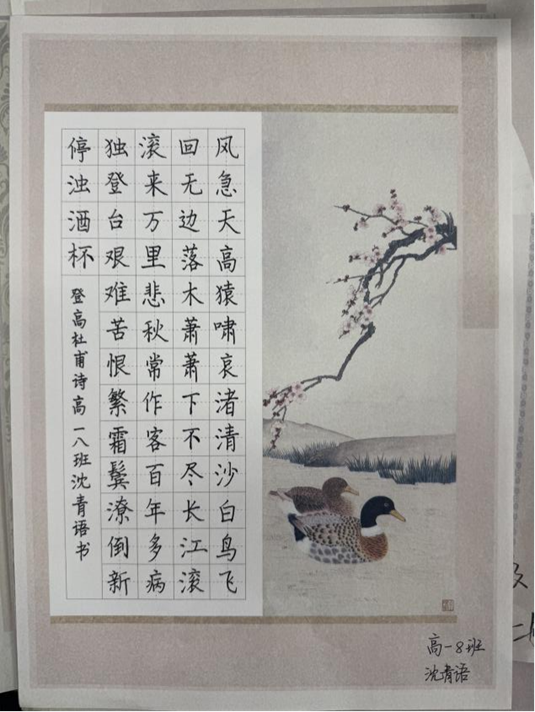 风急天高猿啸哀渚清沙白鸟飞
回无边落木萧萧下不尽长江滚
滚来万里悲秋常作客百年多病
独登台艰难苦恨繁霜鬓潦倒新
停浊酒杯
登高杜甫诗高一八班沈青语书
高一8班
沈青语